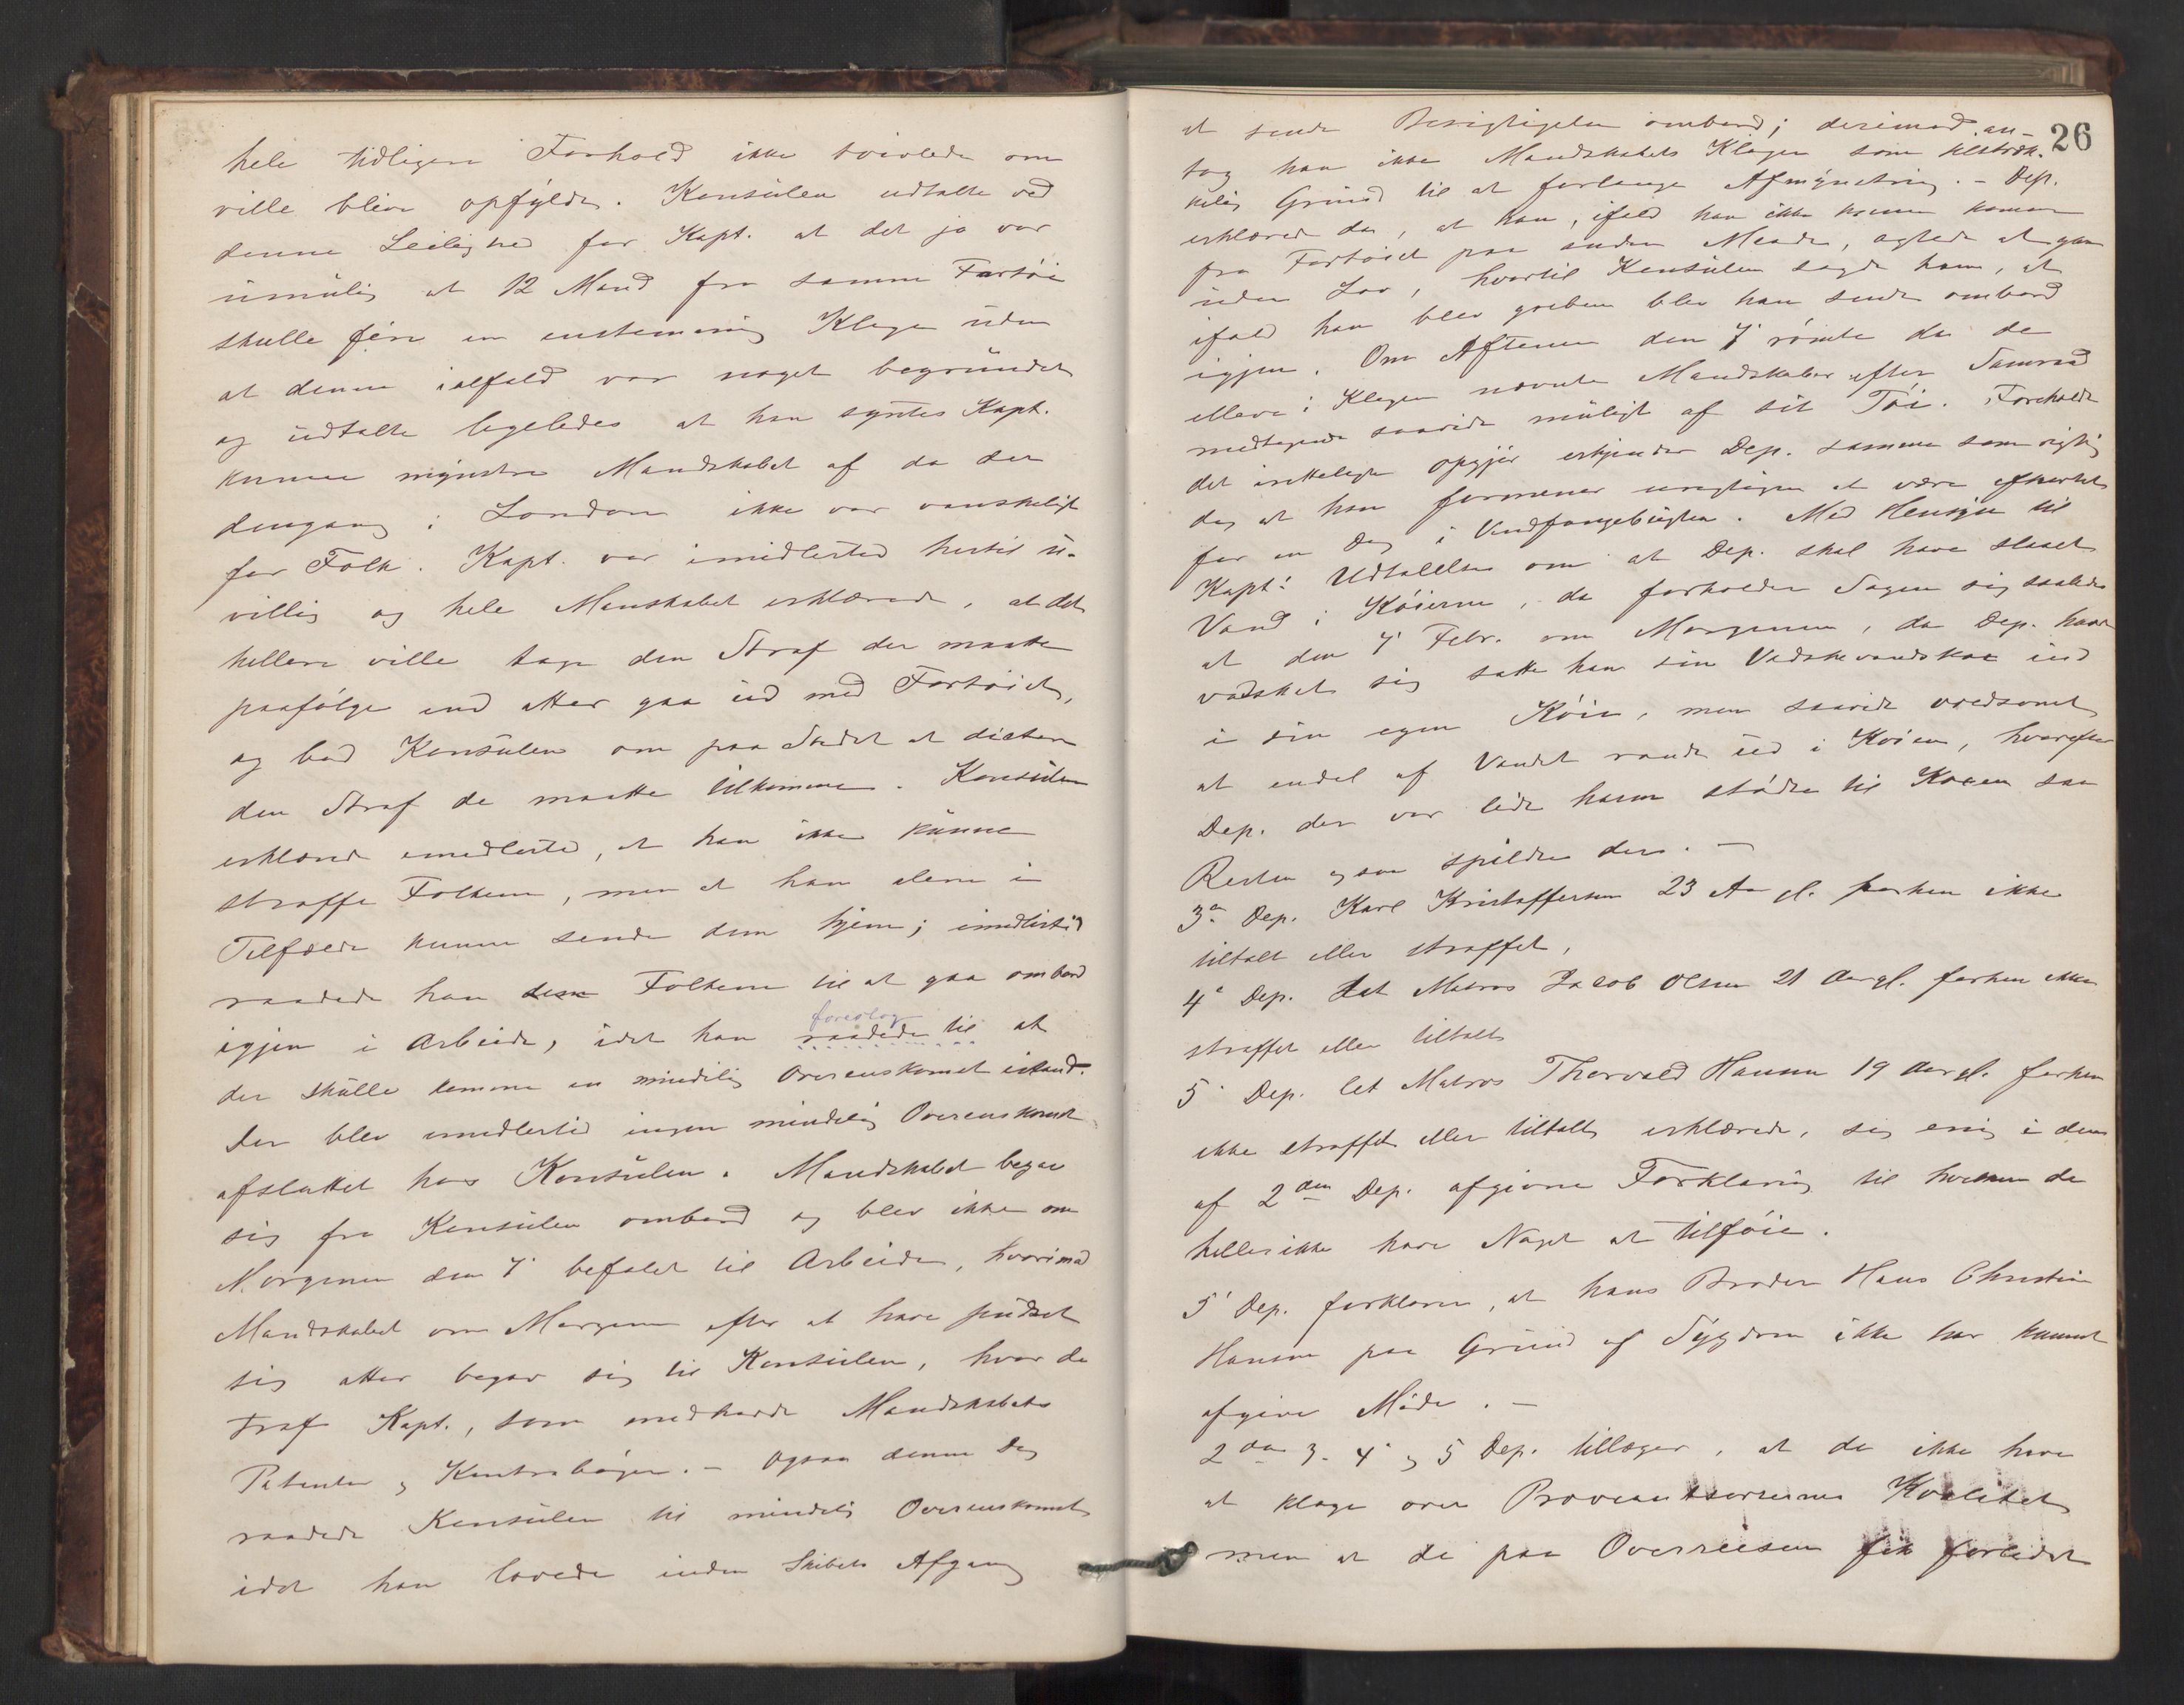 hele tidligere Forhold ikke tvivlede om
ville blive opfyldt. Konsulen udtalte ved
denne Leilighed for Kapt. at det jo var
umulig at 12 Mand fra samme Fartøi
skulle føre en enstemmig Klage uden
at denne ialfald var noget begrundet
og udtalte ligeledes at han syntes Kapt.
kunne mønstre Mandskabet af da der
dengang i London ikke var vanskeligt
for Folk. Kapt. var imidlertid hertil u-
villig og hele Manskabet erklærede, at det
hellere ville tage den Straf der maatte
paafølge end atter gaa ud med Fartøiet,
og bad Konsulen om paa Stedet at dictere
den Straf de maatte tilkomme. Konsulen
erklærede imidlertid, at han ikke kunne
straffe Folkene, men at han alene i
Tilfælde kunne sende dem hjem; imidlertid
raadede han dem Folkene til at gaa ombord
igjen i Arbeide, idet han raadede til at
foreslog
der skulle komme en mindelig Overenskomst istand.
Der blev imidlertid ingen mindelig Overenskomst
afsluttet hos Konsulen. Mandskabet begav
sig fra Konsulen ombord og blev ikke om
Morgenen den 7' befalet til Arbeide, hvorimod
Mandskabet om Morgenen efter at have pudset
sig atter begav sig til Konsulen, hvor de
traf Kapt., som medhavde Mandskabets
Patenter og Kontrabøger. - Ogsaa denne Dag
raadede Konsulen til mindelig Overenskomst
idet han lovede inden Skibets Afgang
26
at sende Besigtigelse ombord; derimod an-
tog han ikke Mandskabets Klager som tilstræk-
kelig Grund til at forlange Afmynstring. - Dep.
erklærede da, at han, ifald han ikke kunne komme
fra Fartøiet paa anden Maade, agtede at gaa
uden Lov, hvortil Konsulen sagde ham, at
ifald han blev greben blev han sendt ombord
igjen. Om Aftenen den 7' rømte da de
elleve i Klagen nævnte Mandskaber efter Samraad
medtagende saavidt muligt af sit Tøi. Foreholdt
det irettelagte Opgjør erkjender Dep. samme som rigtig
dog at han formener urigtigen at være afkortet
for en Dag i Vindfangebugten. Med Hensyn til
Kapt.s Udtalelse om at Dep. skal have slaaet
Vand i Køierne, da forholder Sagen sig saaledes
at den 7' Febr. om Morgenen, da Dep. havde
vadsket sig satte han sin Vadskevandskop ind
i sin egen Køie, men saavidt voldsomt
at endel af Vandet randt ud i Køien, hvorefter
Dep. der var lidt harm stødte til Koppen saa
Resten ogsaa spildtes der. -
3die Dep. Karl Kristoffersen 23 Aar gl. forhen ikke
tiltalt eller straffet,
4' Dep. Let Matros Jacob Olsen 21 Aar gl. forhen ikke
straffet eller tiltalt
5' Dep. let Matros Thorvald Hansen 19 Aar gl. forhen
ikke straffet eller tiltalt erklærede, sig enig i den
af 2den Dep. afgivne Forklaring til hvilken de
heller ikke have Noget at tilføie.
5' Dep. forklarer, at hans Broder Hans Christian
Hansen paa Grund af Sygdom ikke har kunnet
afgive Møde. -
2den 3. 4' og 5 Dep. tillægger, at de ikke have
at klage over Proviantsorternes Kvalitet
men at de paa Overreisen fik fordret